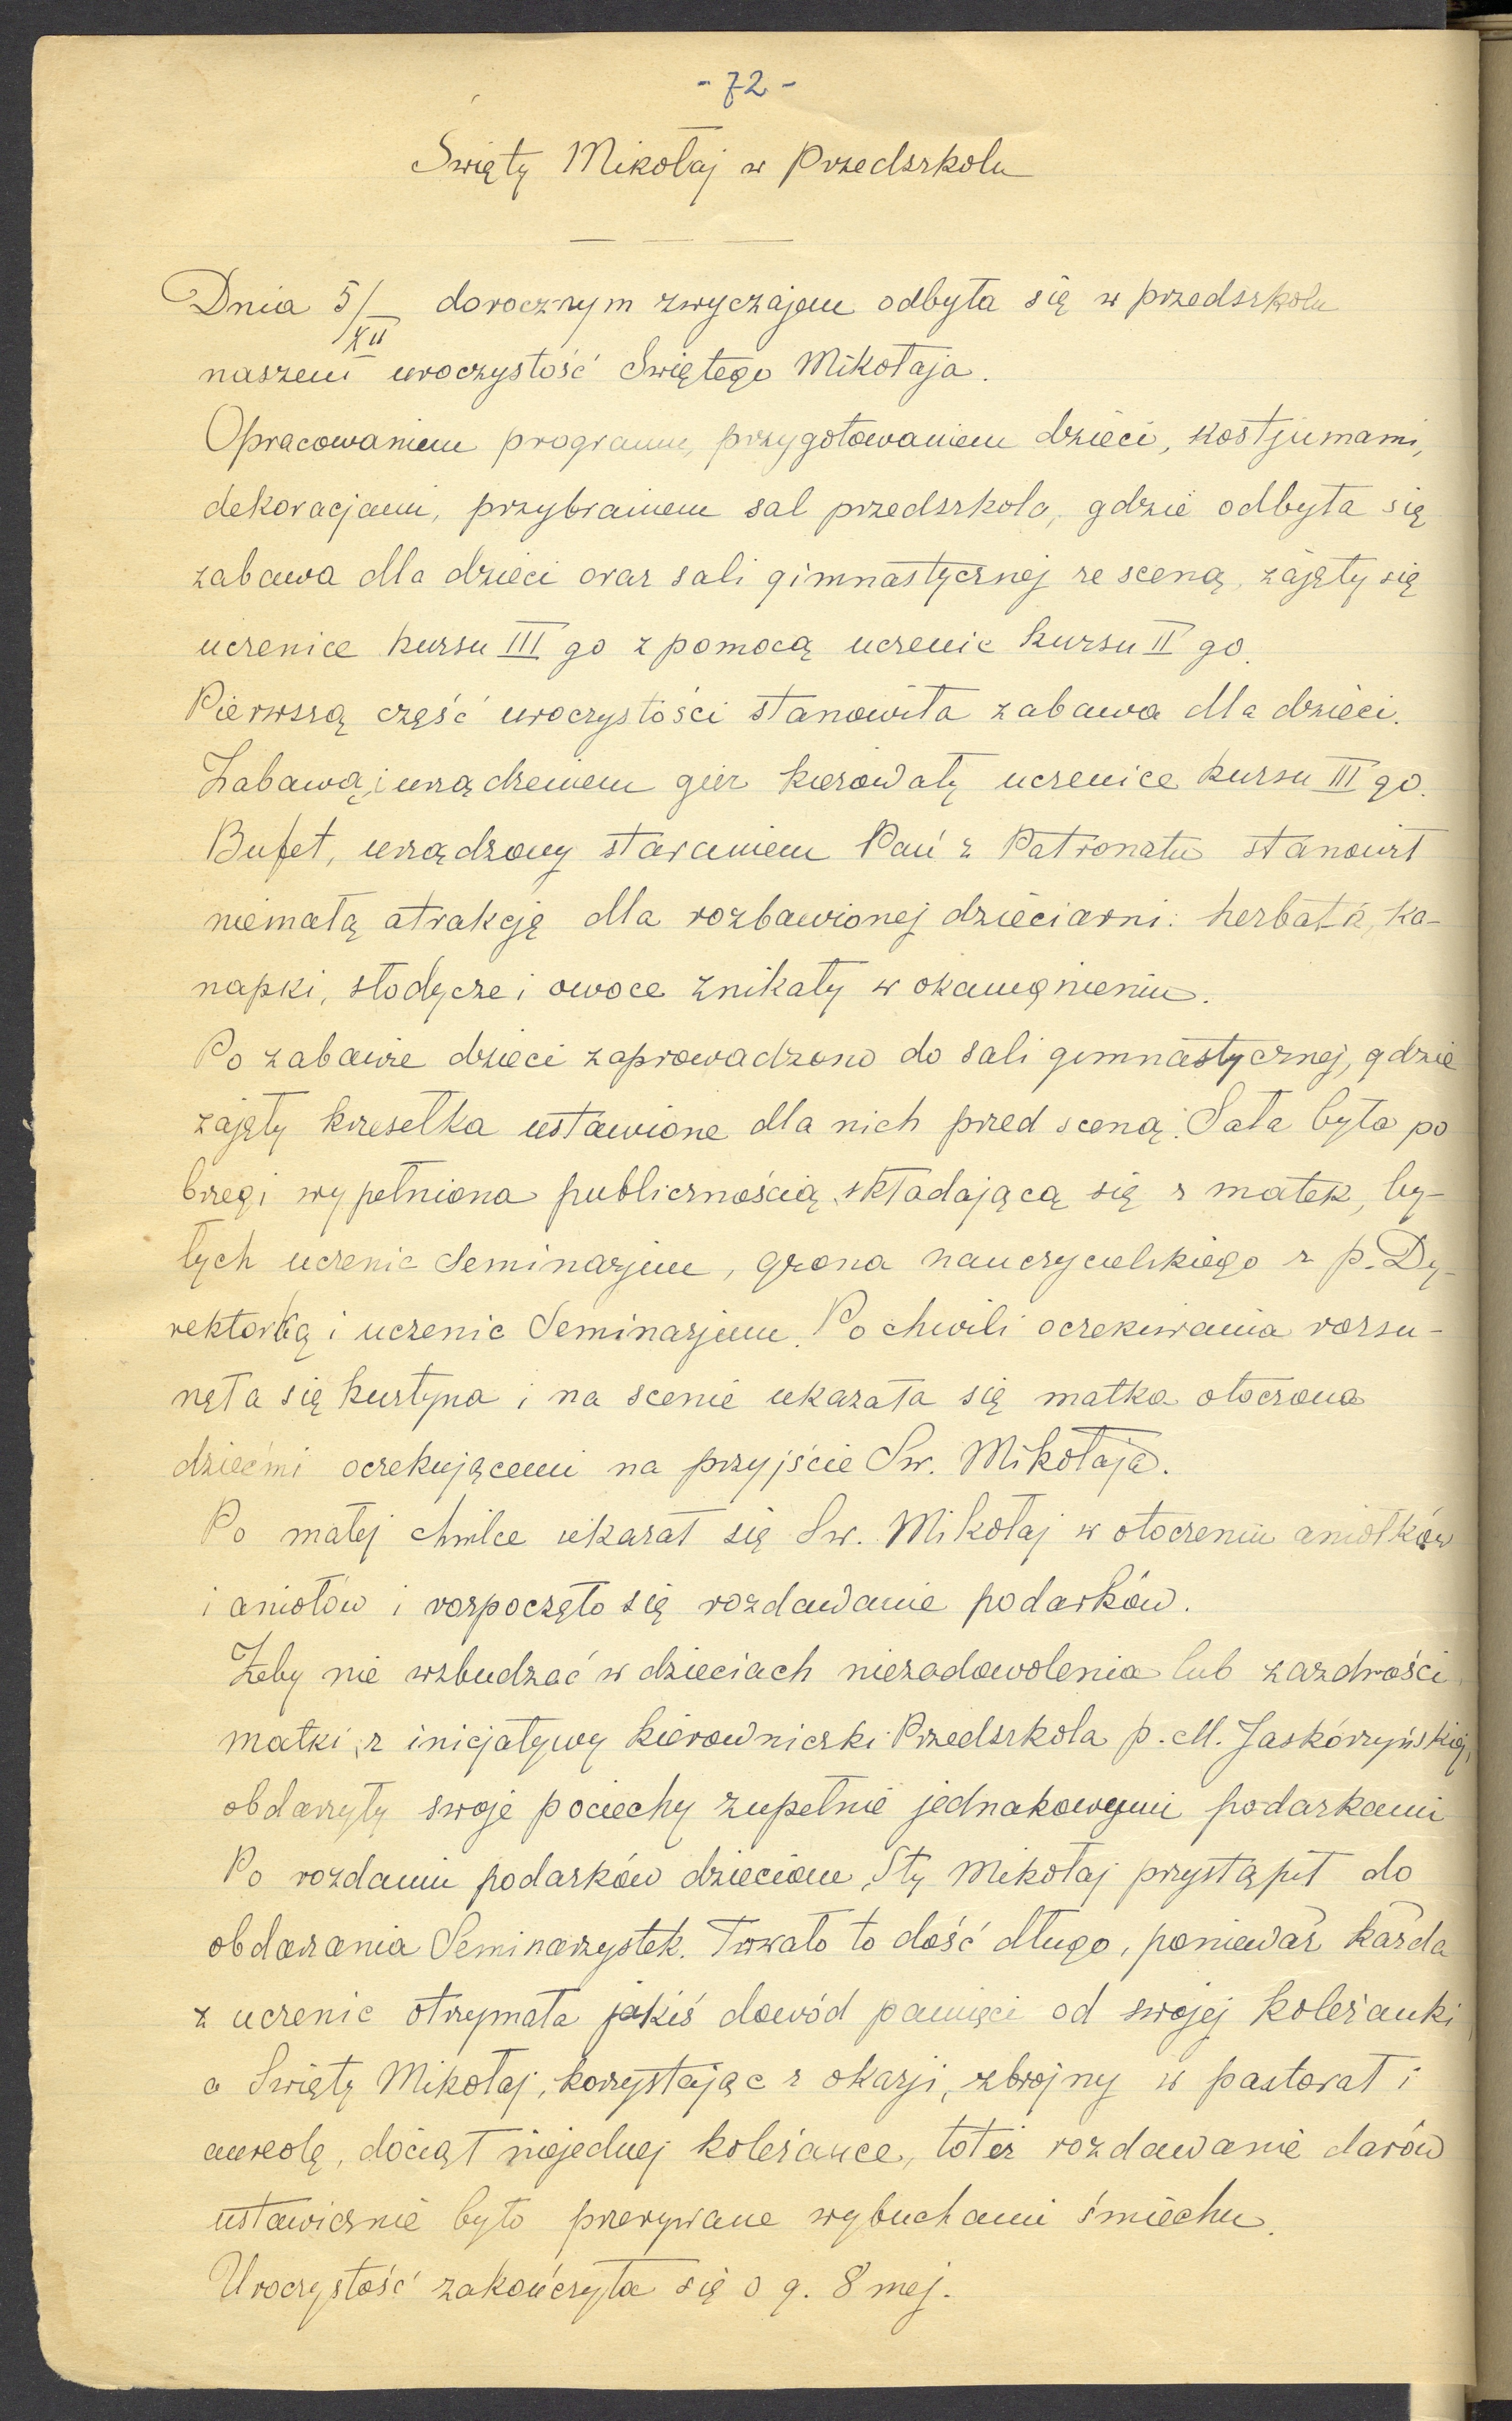 - 72 -
Święty Mikołaj w Przedszkolu
Dnia 5/XII dorocznym zwyczajem odbyła się w przedszkolu
naszem uroczystość Świętego Mikołaja.
Opracowaniem programu, przygotowaniem dzieci, kostjumami,
dekoracjami, przybraniem sal przedszkola, gdzie odbyła się
zabawa dla dzieci oraz sali gimnastycznej ze sceną, zajęły się
uczenice kursu III go z pomocą uczenic kursu II go.
Pierwszą część uroczystości stanowiła zabawa dla dzieci.
Zabawą i urządzeniem gier kierowały uczenice kursu III go.
Bufet, urządzony staraniem Pań z Patronatu stanowił
niemałą atrakcję dla rozbawionej dzieciarni: herbatk, ka-
napki, słodycze i owoce znikały w okamgnieniu.
Po zabawie dzieci zaprowadzono do sali gimnastycznej, gdzie
zajęły krzesełka ustawione dla nich przed sceną. Sala była po
brzegi wypełniona publicznością, składającą się z matek, by-
łych uczenic Seminarjum, grona nauczycielskiego z p. Dy-
rektorką i uczenic Seminarjum. Po chwili oczekiwania rozsu-
nęła się kurtyna i na scenie ukazała się matka otoczona
dziećmi oczekującemi na przyjście Św. Mikołaja.
Po małej chwilce ukazał się Św. Mikołaj w otoczeniu aniołków
i aniołów i rozpoczęło się rozdawanie podarków.
Żeby nie wzbudzać w dzieciach niezadowolenia lub zazdrości,
matki, z inicjatywy kierowniczki Przedszkola p. M. Jaskórzyńskiej,
obdarzyły swoje pociechy zupełnie jednakowymi podarkami
Po rozdaniu podarków dzieciom, Sty Mikołaj przystąpił do
obdarzania Seminarzystek. Trwało to dość długo, ponieważ każda
z uczenic otrzymała jakiś dowód pamięci od swojej koleżanki,
a Święty Mikołaj, korzystając z okazji, zbrojny w pastorał i
aureolę, dociął niejednej koleżance, toteż rozdawanie darów
ustawicznie było przerywane wybuchami śmiechu.
Uroczystość zakończyła się o g. 8 mej.